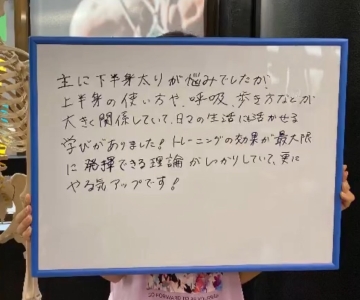 主に下半身太りが悩みでしたが、
上半身の使い方や、呼吸、歩き方などが
大きく関係していて、日々の生活にも活かせる
学びがありました！トレーニングの効果が最大限
に発揮できる理論がしっかりしていて、更に
やる気アップです！